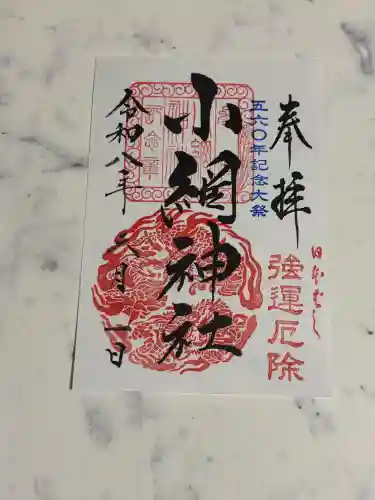 奉拝
五六〇年記念大祭
強運厄除
小網神社
令和八年
六月一日